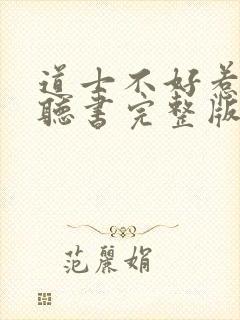 道士不好惹
聽書完整版
范麗娟